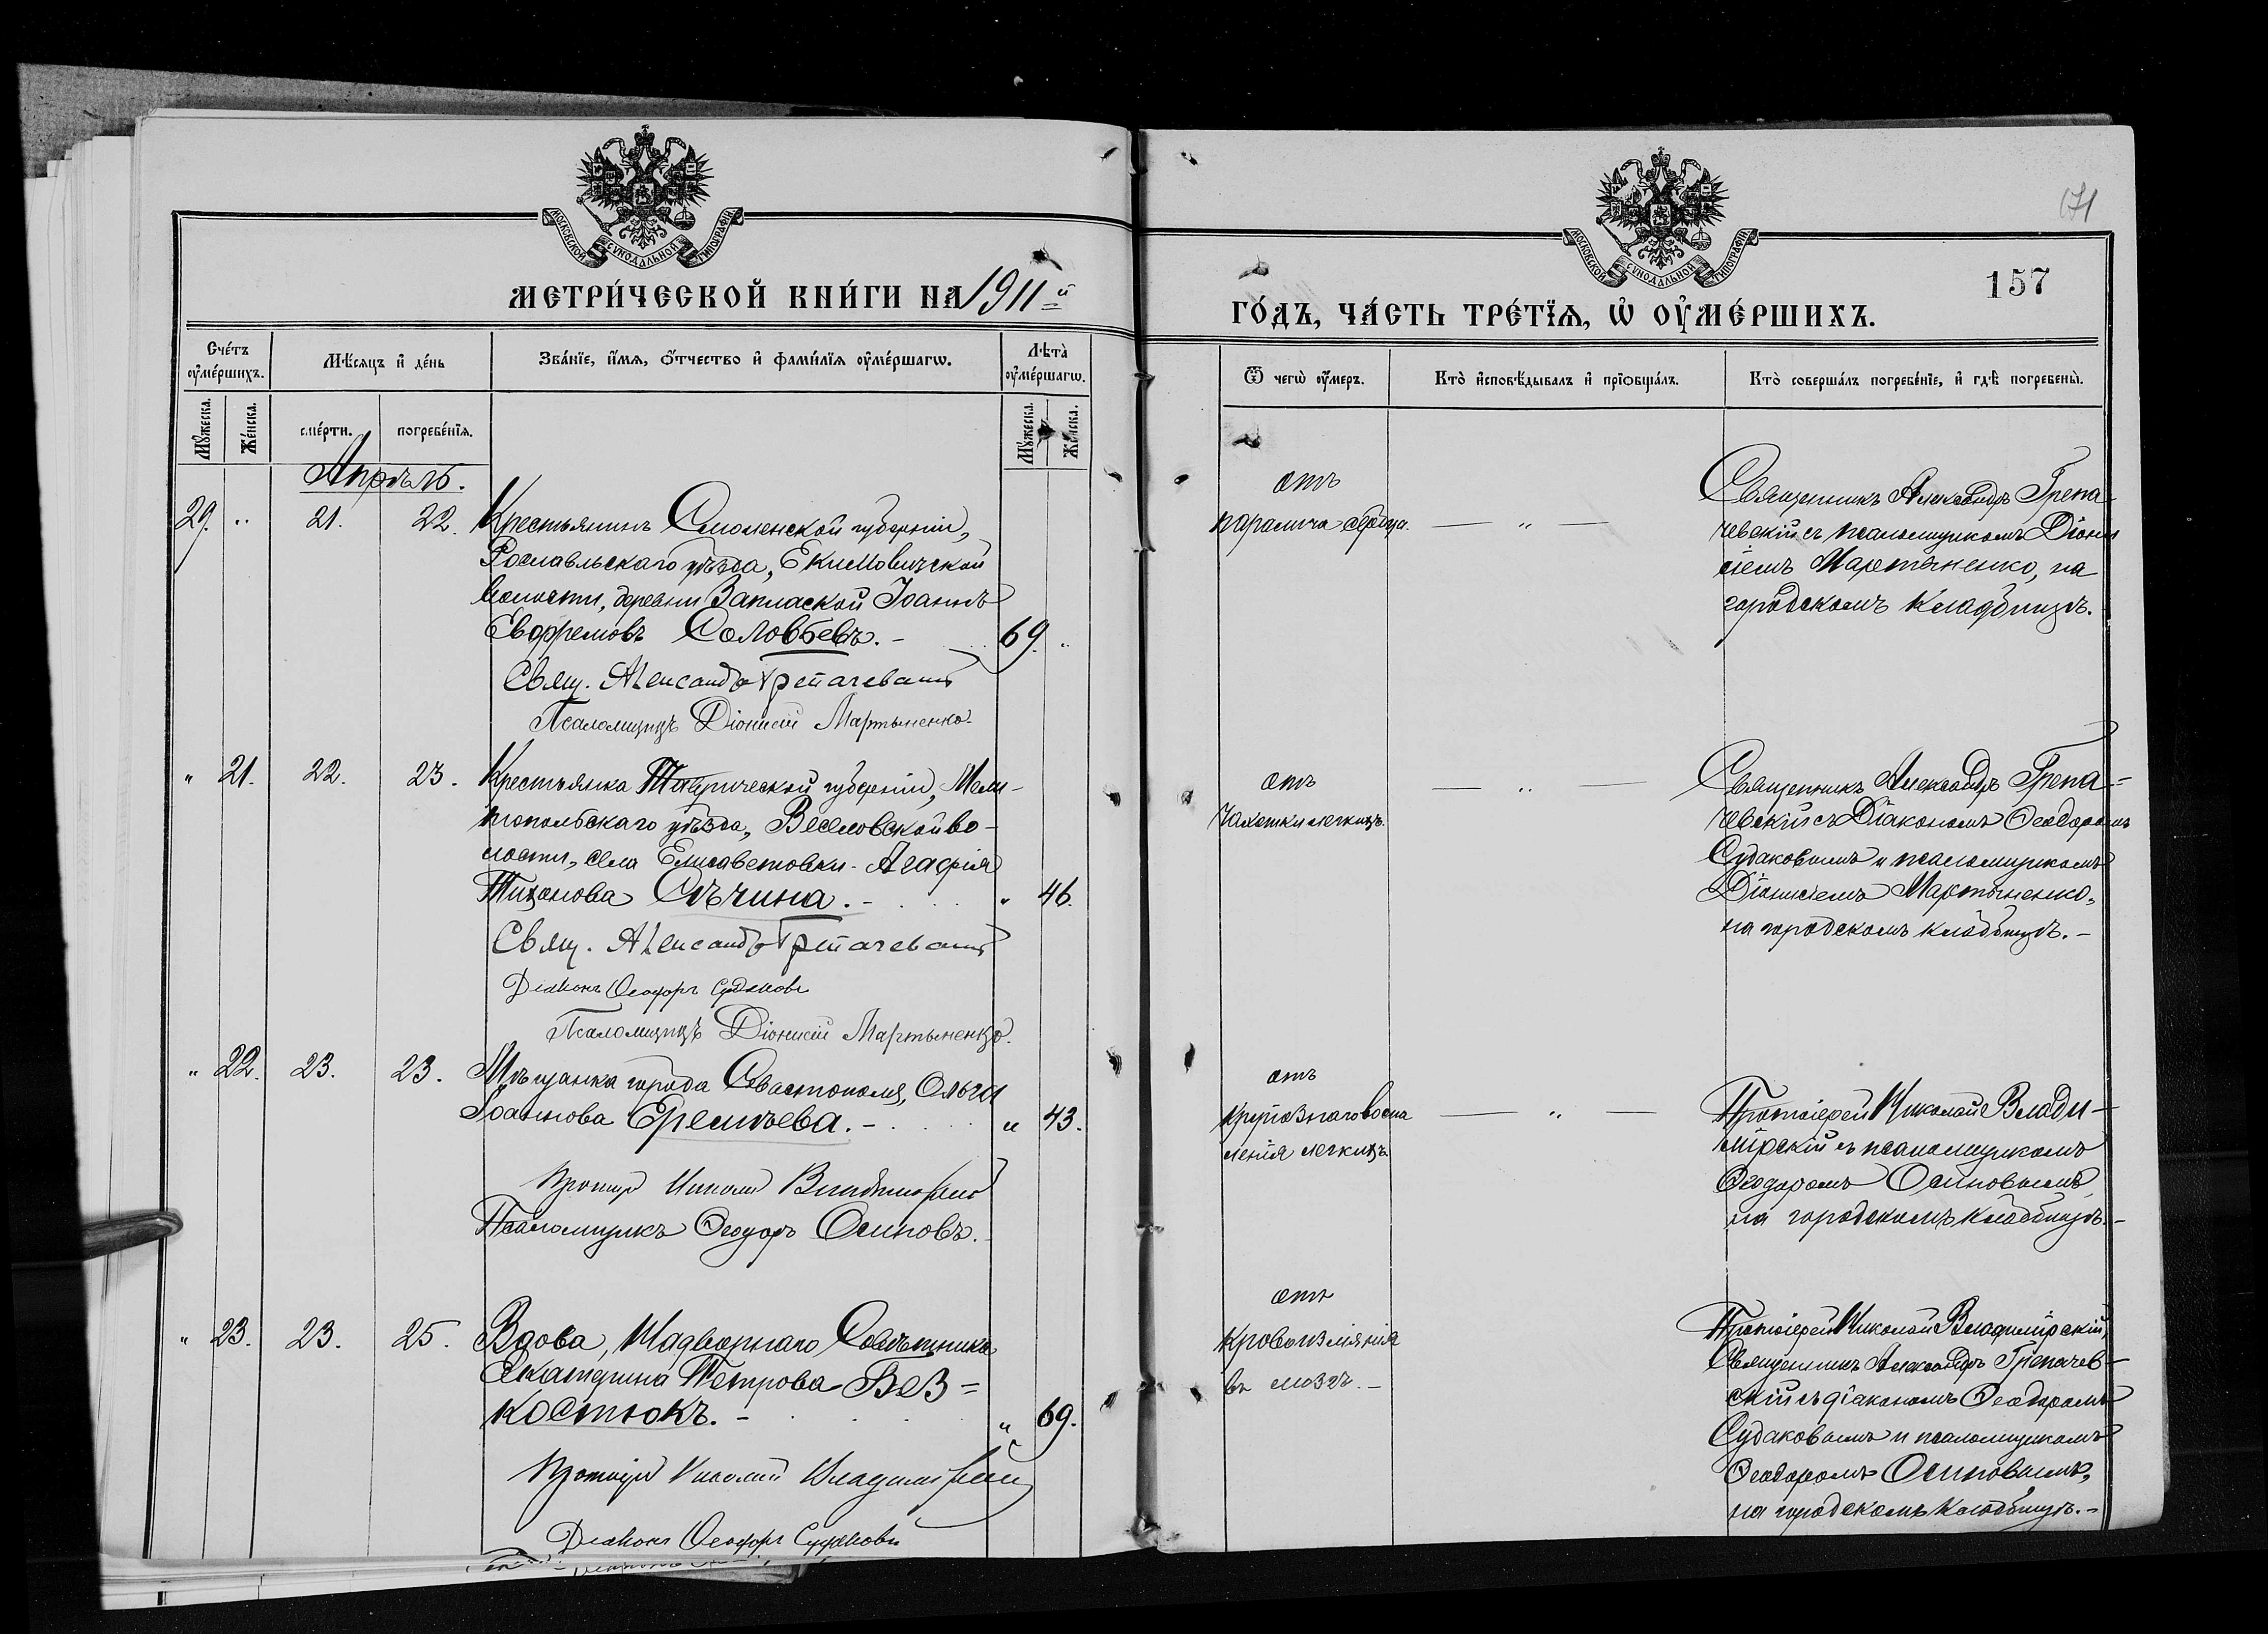 МОСКОВСКОЙ СѴНОДАЛЬНОЙ ТИПОГРАФІИ
МЕТРИ́ЧЕСКОЙ КНИ́ГИ НА 1911й
Сче́тъ оу҆ме́ршихъ.
Мѣ́сяцъ и҆ де́нь
Зва́нїе, и҆́мѧ, ѻ҆́тчество и҆ фами́лїѧ оу҆ме́ршагѡ.
Лѣ́та оу҆ме́ршагѡ.
Мꙋ́жеска.
Же́нска.
сме́рти.
погребе́нїѧ.
Мꙋ́жеска.
Же́нска.
Апрѣль.
29. " 21. 22. Крестьянинъ Смоленской губерніи,
Рославльскаго уѣзда, Екимовичской
волости, деревни Іоаннъ
Евфремовъ Соловьевъ. - 69. "
Свящ. Александръ Грепачевскій
Псаломщикъ Діонисій Мартыненко.
" 21. 22. 23. Крестьянка Таврической губерніи, Мели-
топольскаго уѣзда, Веселовской во-
лости, села Елисаветовки - Агафія
Тихонова Сѣчина. - " 46.
Свящ. Александръ Грепачевскій
Діаконъ Ѳеодоръ Судаковъ
Псаломщикъ Діонисій Мартыненко.
" 22. 23. 23. Мѣщанка города Севастополя, Ольга
Іоаннова Еремѣева. - " 43.
Протоіерей Николай Владимірскій
Псаломщикъ Ѳеодоръ Осиповъ.
" 23. 23. 25. Вдова, Надворнаго Совѣтника
Екатерина Петрова Без=
костюкъ. - " 69.
Протоіерей Николай Владимірскій
Діаконъ Ѳеодоръ Судаковъ
МОСКОВСКОЙ СѴНОДАЛЬНОЙ ТИПОГРАФІИ
171
157
ГО́ДЪ, ЧА́СТЬ ТРЕ́ТЇѦ, Ѡ҆ ОУ҆МЕ́РШИХЪ.
Ѿ чегѡ̀ оу҆́меръ.
Кто̀ и҆сповѣ́дывалъ и҆ прїѡбща́лъ.
Кто̀ соверша́лъ погребе́нїе, и҆ гдѣ̀ погребены̀.
отъ
паралича сердца. — " —
Священникъ Александръ Грепа-
чевскій съ псаломщикомъ Діони-
сіемъ Мартыненко, на
городскомъ кладбищѣ.
отъ
чахотки легкихъ. — " —
Священникъ Александръ Грепа=
чевскій съ Діакономъ Ѳеодоромъ
Судаковымъ и псаломщикомъ
Діонисіемъ Мартыненко,
на городскомъ кладбищѣ. -
отъ
крупознаго воспа
ленія легкихъ. — " —
Протоіерей Николай Влади-
мірскій съ псаломщикомъ
Ѳеодоромъ Осиповымъ,
на городскомъ кладбищѣ. -
отъ
кровоизліянія
въ мозгъ. -
Протоіерей Николай Владимірскій,
Священникъ Александръ Грепачев-
скій съ діакономъ Ѳеодоромъ
Судаковымъ и псаломщикомъ
Ѳеодоромъ Осиповымъ,
на городскомъ кладбищѣ. -